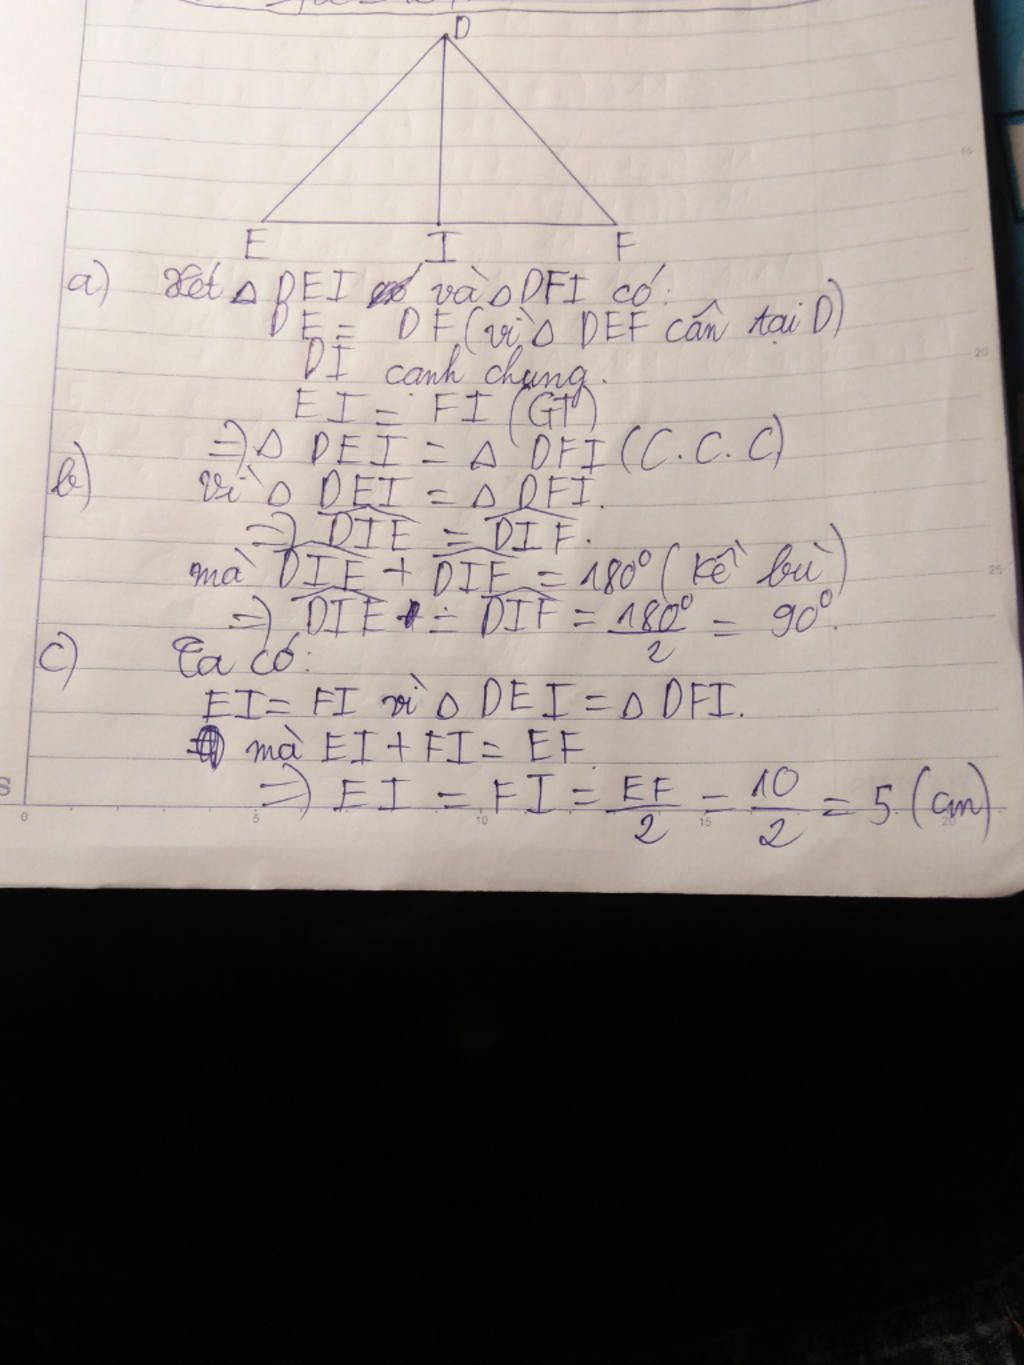 D
E I F
a) Xét △ DEI và △ DFI có:
DE = DF (vì △ DEF cân tại D)
DI cạnh chung.
EI = FI (GT)
=> △ DEI = △ DFI (C.C.C)
b) Vì △ DEI = △ DFI.
=> \widehat{DIE} = \widehat{DIF}.
mà \widehat{DIE} + \widehat{DIF} = 180° (kề bù)
=> \widehat{DIE} = \widehat{DIF} = 180°/2 = 90°.
c) Ta có:
EI = FI vì △ DEI = △ DFI.
mà EI + FI = EF
=> EI = FI = EF/2 = 10/2 = 5 (cm)